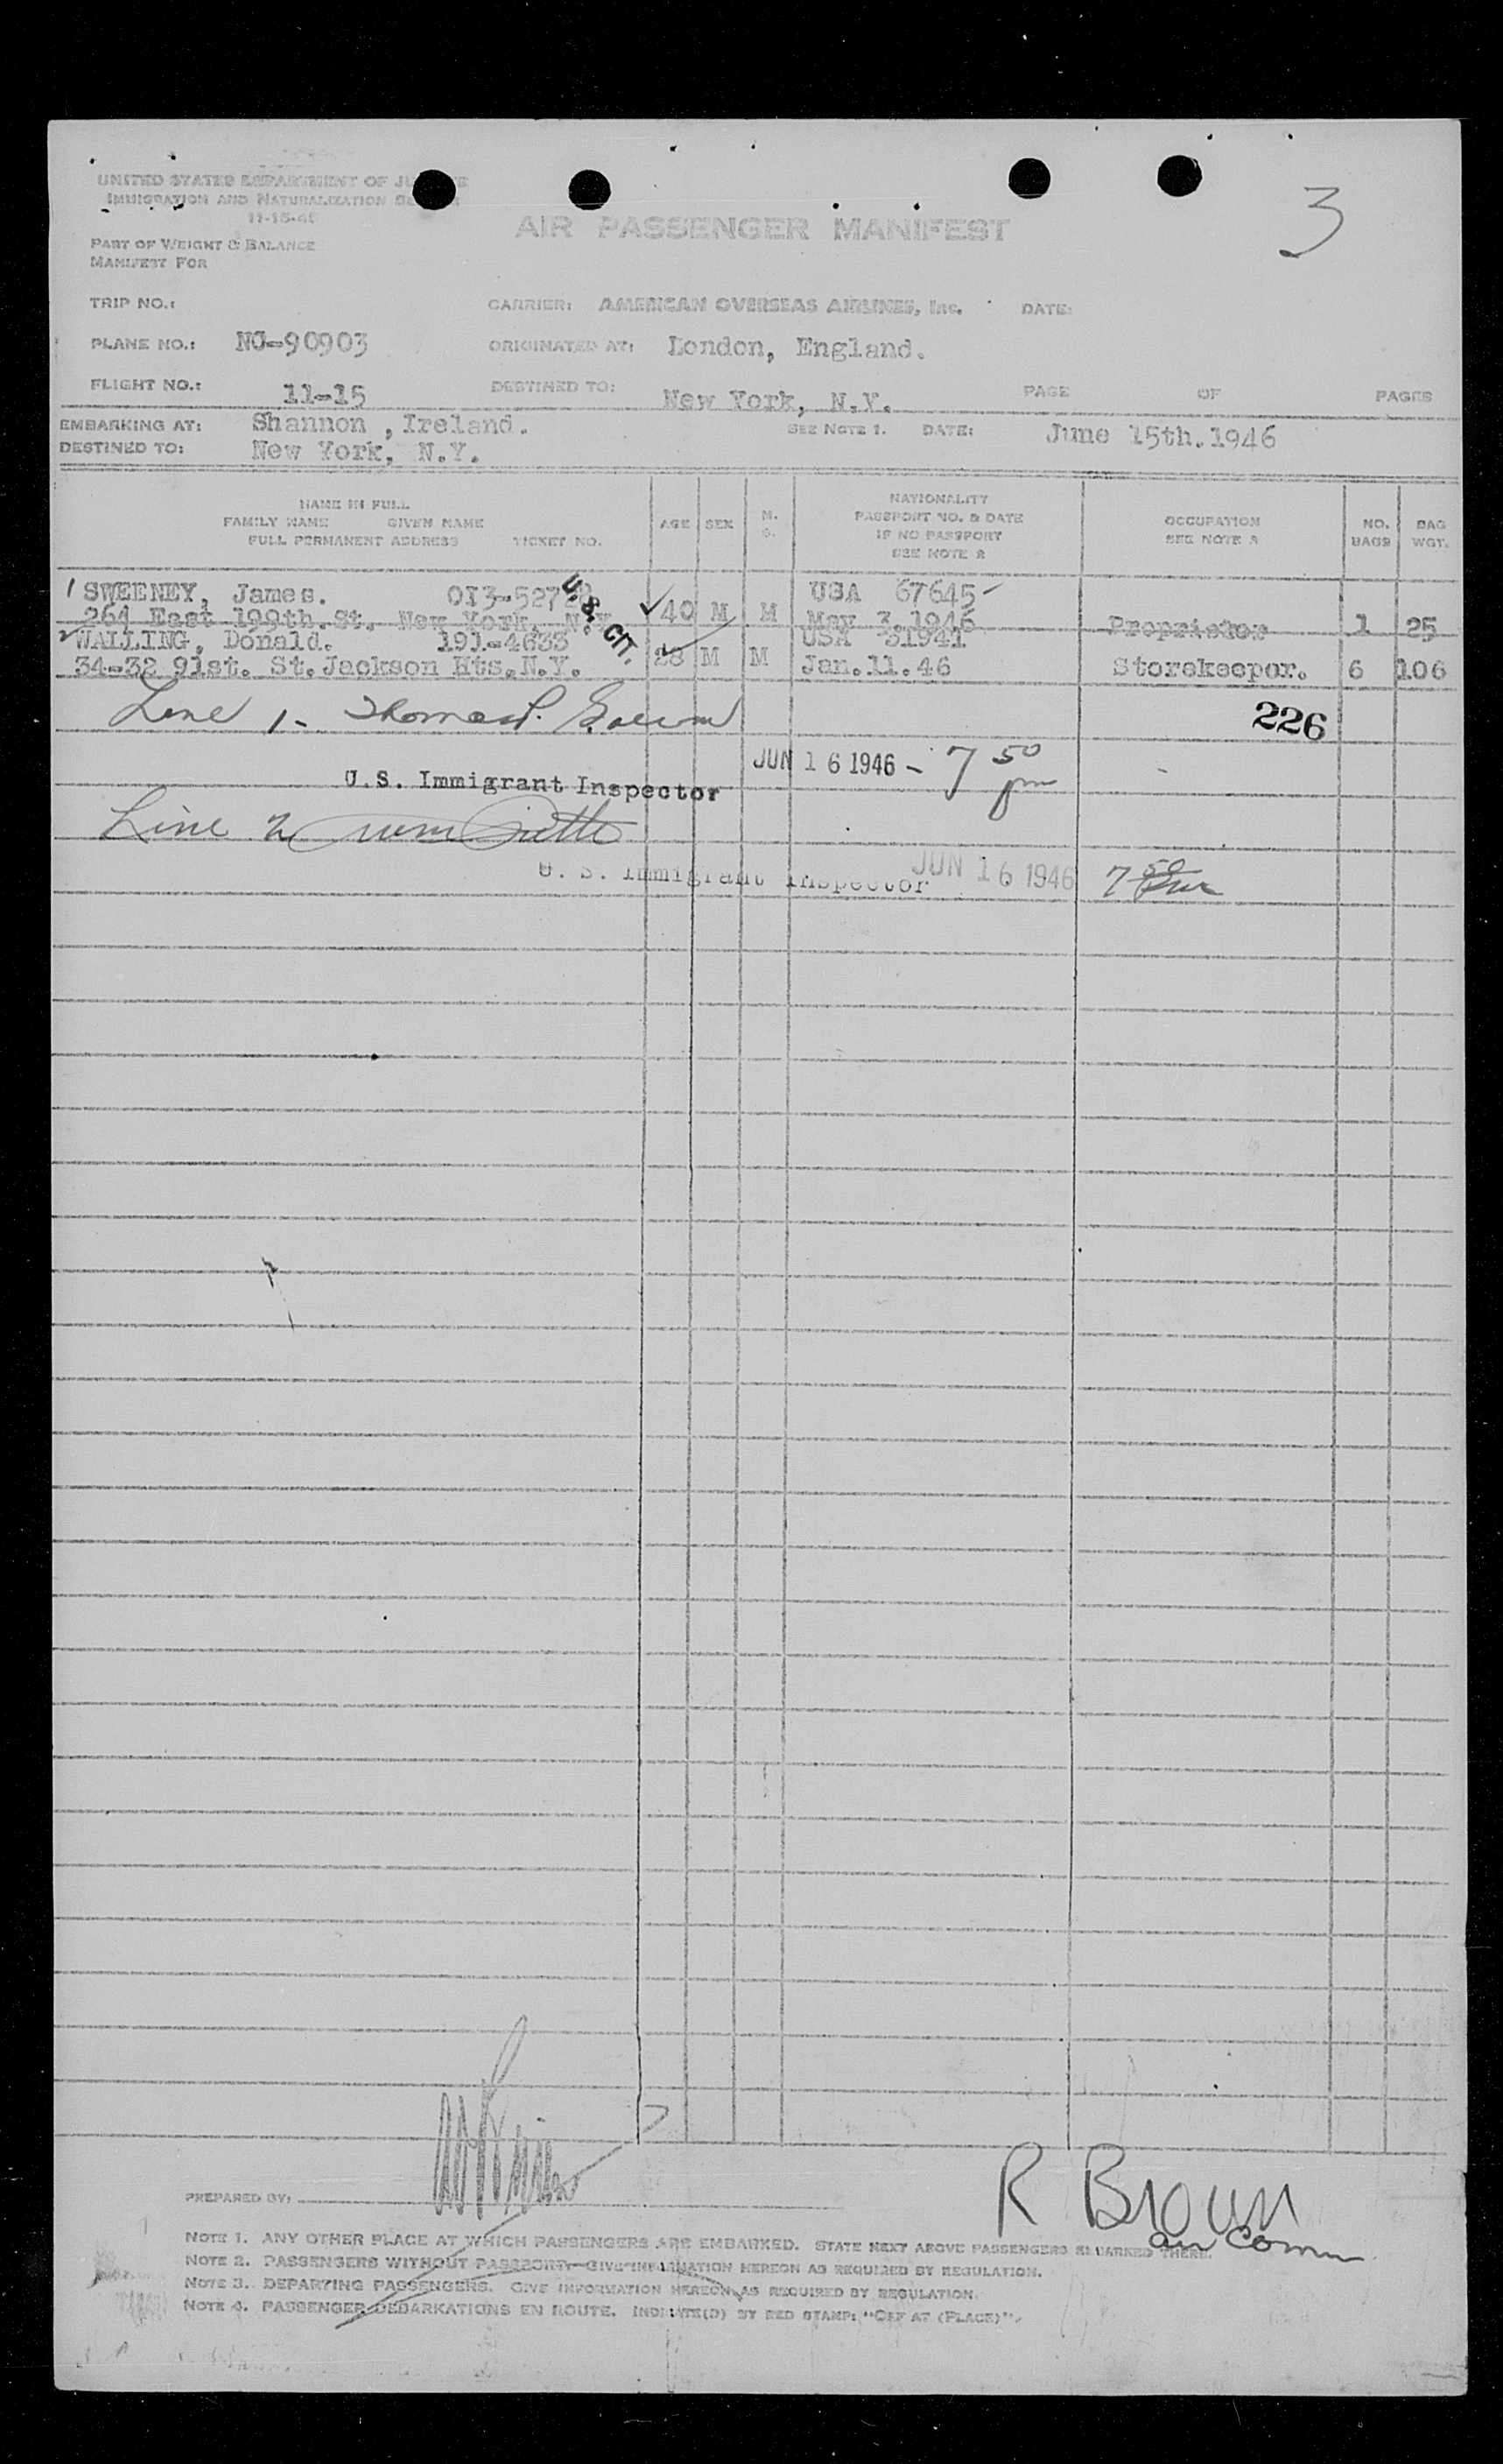 3
UNITED STATES DEPARTMENT OF
IMMIGRATION AND NATURALIZATION
11-15-45
AIR PASSENGER MANIFEST
PART OF WEIGHT & BALANCE
MANIFEST FOR
TRIP NO.:
CARRIER: AMERICAN OVERSEAS AIRLINES, Inc. DATE:
PLANE NO.: NC-90903 ORIGINATED AT: London, England.
FLIGHT NO.: 11-15 DESTINED TO: New York, N.Y. PAGE OF PAGES
EMBARKING AT: Shannon, Ireland. SEE NOTE 1. DATE: June 15th.1946
DESTINED TO: New York, N.Y.
NAME IN FULL
FAMILY NAME GIVEN NAME
FULL PERMANENT ADDRESS TICKET NO.
AGE SEX M. S.
NATIONALITY
PASSPORT NO. & DATE
IF NO PASSPORT
SEE NOTE 2
OCCUPATION
SEE NOTE 2
NO. BAGS
BAG WGT.
1 SWEENEY, James. 013-52728 U.S. CIT. 40 M M USA 67645
264 East 199th.St. New York, N.Y. May 3.1946 Proprietor 1 25
WALLING, Donald. 191-4633 28 M M USA 31941
34-32 91st. St.Jackson Hts.N.Y. Jan.11.46 Storekeeper. 6 106
Line 1- Thomas
226
JUN 16 1946 - 7 50 pm
U.S. Immigrant Inspector
Line 2
U. S. Immigrant Inspector JUN 16 1946 7 50 pm
PREPARED BY:
R Brown
NOTE 1. ANY OTHER PLACE AT WHICH PASSENGERS ARE EMBARKED. STATE NEXT ABOVE PASSENGERS EMBARKED THERE.
NOTE 2. PASSENGERS WITHOUT PASSPORT—GIVE INFORMATION HEREON AS REQUIRED BY REGULATION.
NOTE 3. DEPARTING PASSENGERS. GIVE INFORMATION HEREON AS REQUIRED BY REGULATION.
NOTE 4. PASSENGER DEBARKATIONS EN ROUTE. INDICATE(D) BY RED STAMP: "OFF AT (PLACE)".